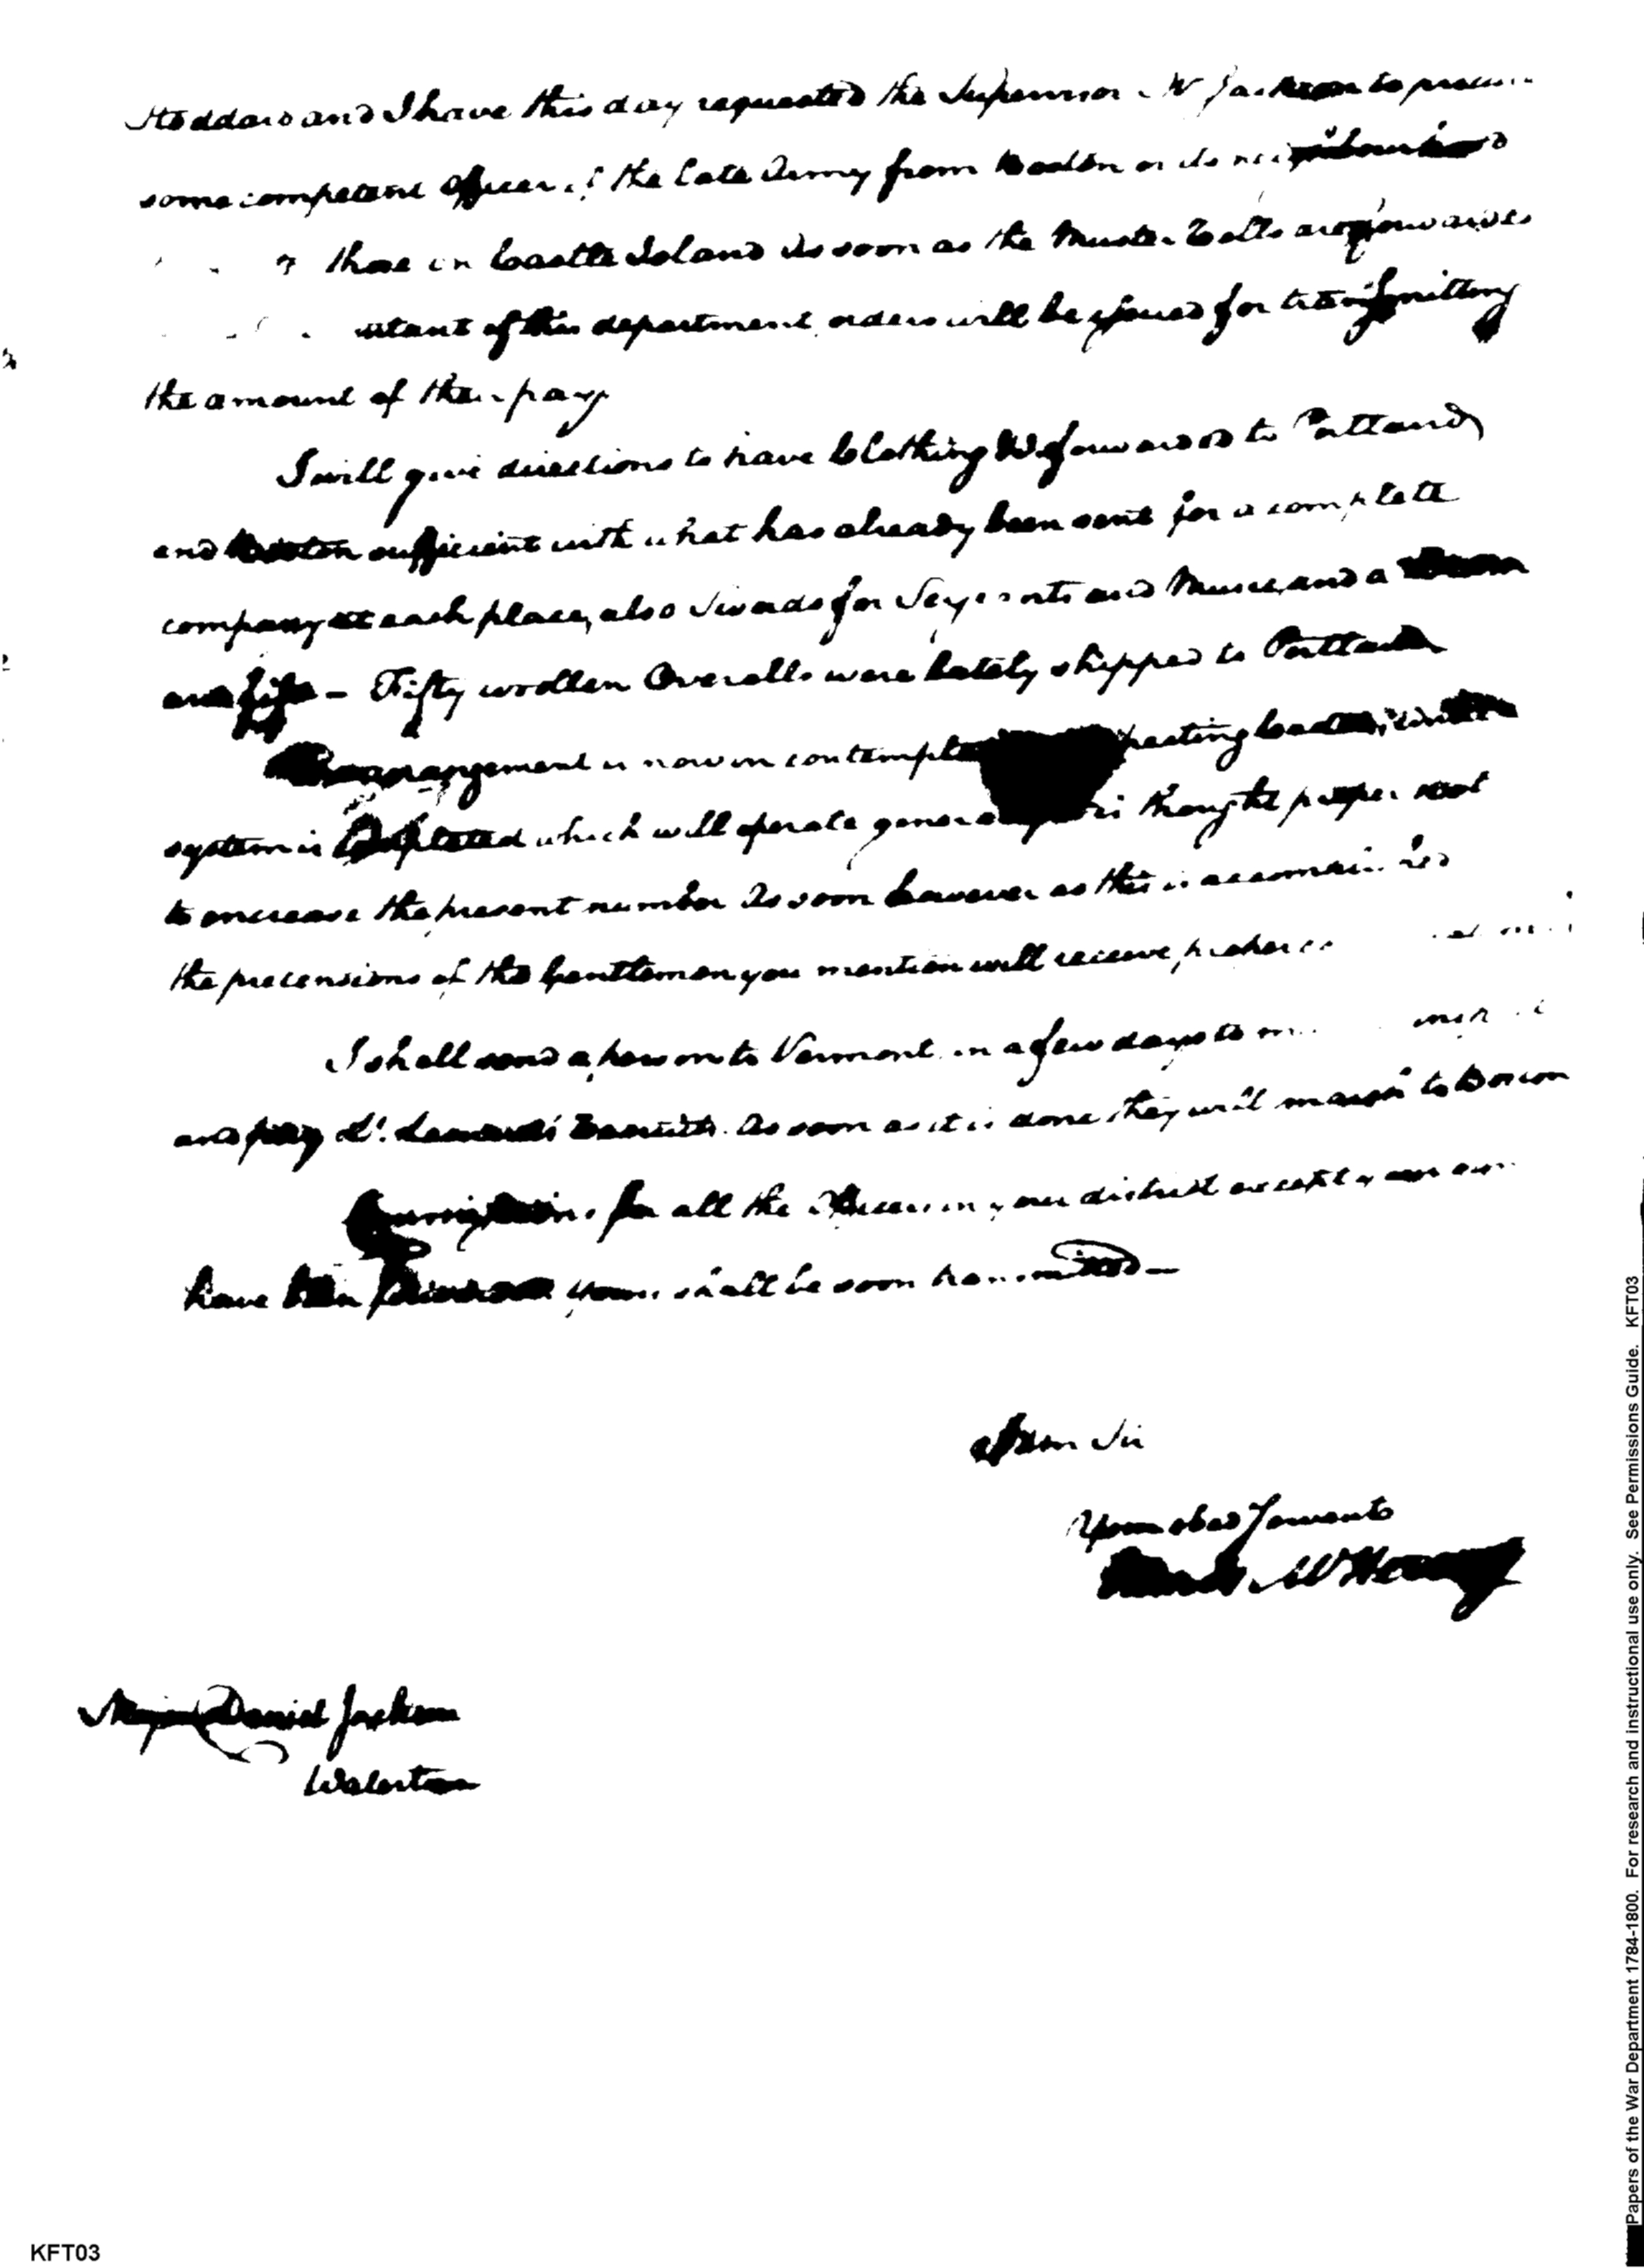 Stoddard and I have this day requested the Supervisor Mr Jackson to procure
some competent officer of the late Army from Boston or its neighbourhood
those on Castle Island As soon as the Muster Rolls are forwarded
of this department orders will be issued for transmitting
the amount of their pay
I will give directions to have Clothing &c forwarded to Portland
and Boston sufficient with what has already been sent for a complete
company at each place, also Swords for Sergeants and Music, and a Drum
and fife – Fifty woollen Overalls were lately shipped to Portland
arrangement is now in
system is which will operate thought proper not
to encrease the present number As soon however as this is
the pretensions of the Gentlemen you mention will receive proper
I shall send a person to Vermont in a few days to
and pay Lt. As soon as it is done they will march to Boston
for all the Officers in your district except your own
have been yours shall be soon transmitted –
I am Sir
Your obed Servant
James McHenry
Major Daniel Jackson
Watertown
KFT03
Papers of the War Department 1784-1800. For research and instructional use only. See Permissions Guide. KFT03